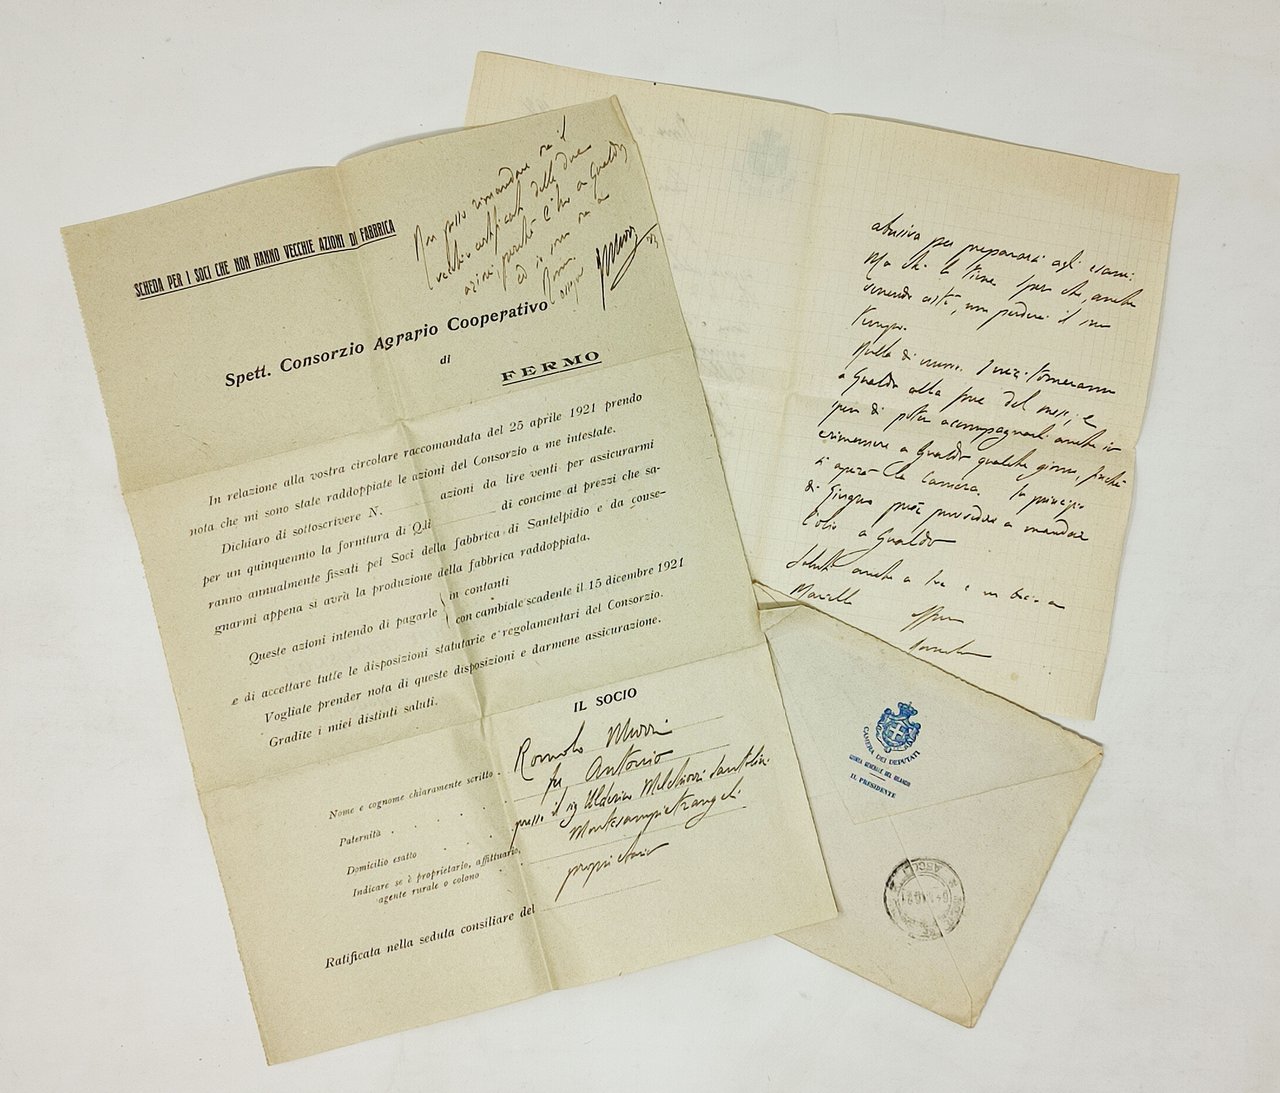 SCHEDA PER I SOCI CHE NON HANNO VECCHIE AZIONI DI FABBRICA
Non posso rimandare
certificati delle due
azioni, perché a Gualdo
ed io sono
Spett. Consorzio Agrario Cooperativo
di
FERMO
In relazione alla vostra circolare raccomandata del 25 aprile 1921 prendo
nota che mi sono state raddoppiate le azioni del Consorzio a me intestate.
Dichiaro di sottoscrivere N. azioni da lire venti per assicurarmi
per un quinquennio la fornitura di Q.li di concime ai prezzi che sa-
ranno annualmente fissati pei Soci della fabbrica di Santelpidio e da conse-
gnarmi appena si avrà la produzione della fabbrica raddoppiata.
Queste azioni intendo di pagarle in contanti
con cambiale scadente il 15 dicembre 1921
e di accettare tutte le disposizioni statutarie e regolamentari del Consorzio.
Vogliate prender nota di queste disposizioni e darmene assicurazione.
Gradite i miei distinti saluti.
IL SOCIO
Nome e cognome chiaramente scritto. Romolo Murri
Paternità . . . fu Antonio
Domicilio esatto . . presso il sig Ulderico Melchiorri
Montesampietrangeli
Indicare se è proprietario, affittuario,
agente rurale o colono proprietario
Ratificata nella seduta consiliare del
abusiva per prepararsi agli esami.
Ma chi lo tiene spera che, anche
venendo costì, non perderà il suo
tempo.
Nulla di nuovo. torneranno
a Gualdo alla fine del mese; e
spero di poter accompagnarli anch'io
e rimanere a Gualdo qualche giorno, finché
si aprirà la Camera. In principio
di Giugno potrò provvedere a mandare
l'olio a Gualdo
Saluti anche a e un bacio a
CAMERA DEI DEPUTATI
GIUNTA GENERALE DEL BILANCIO
IL PRESIDENTE
ASCOLI